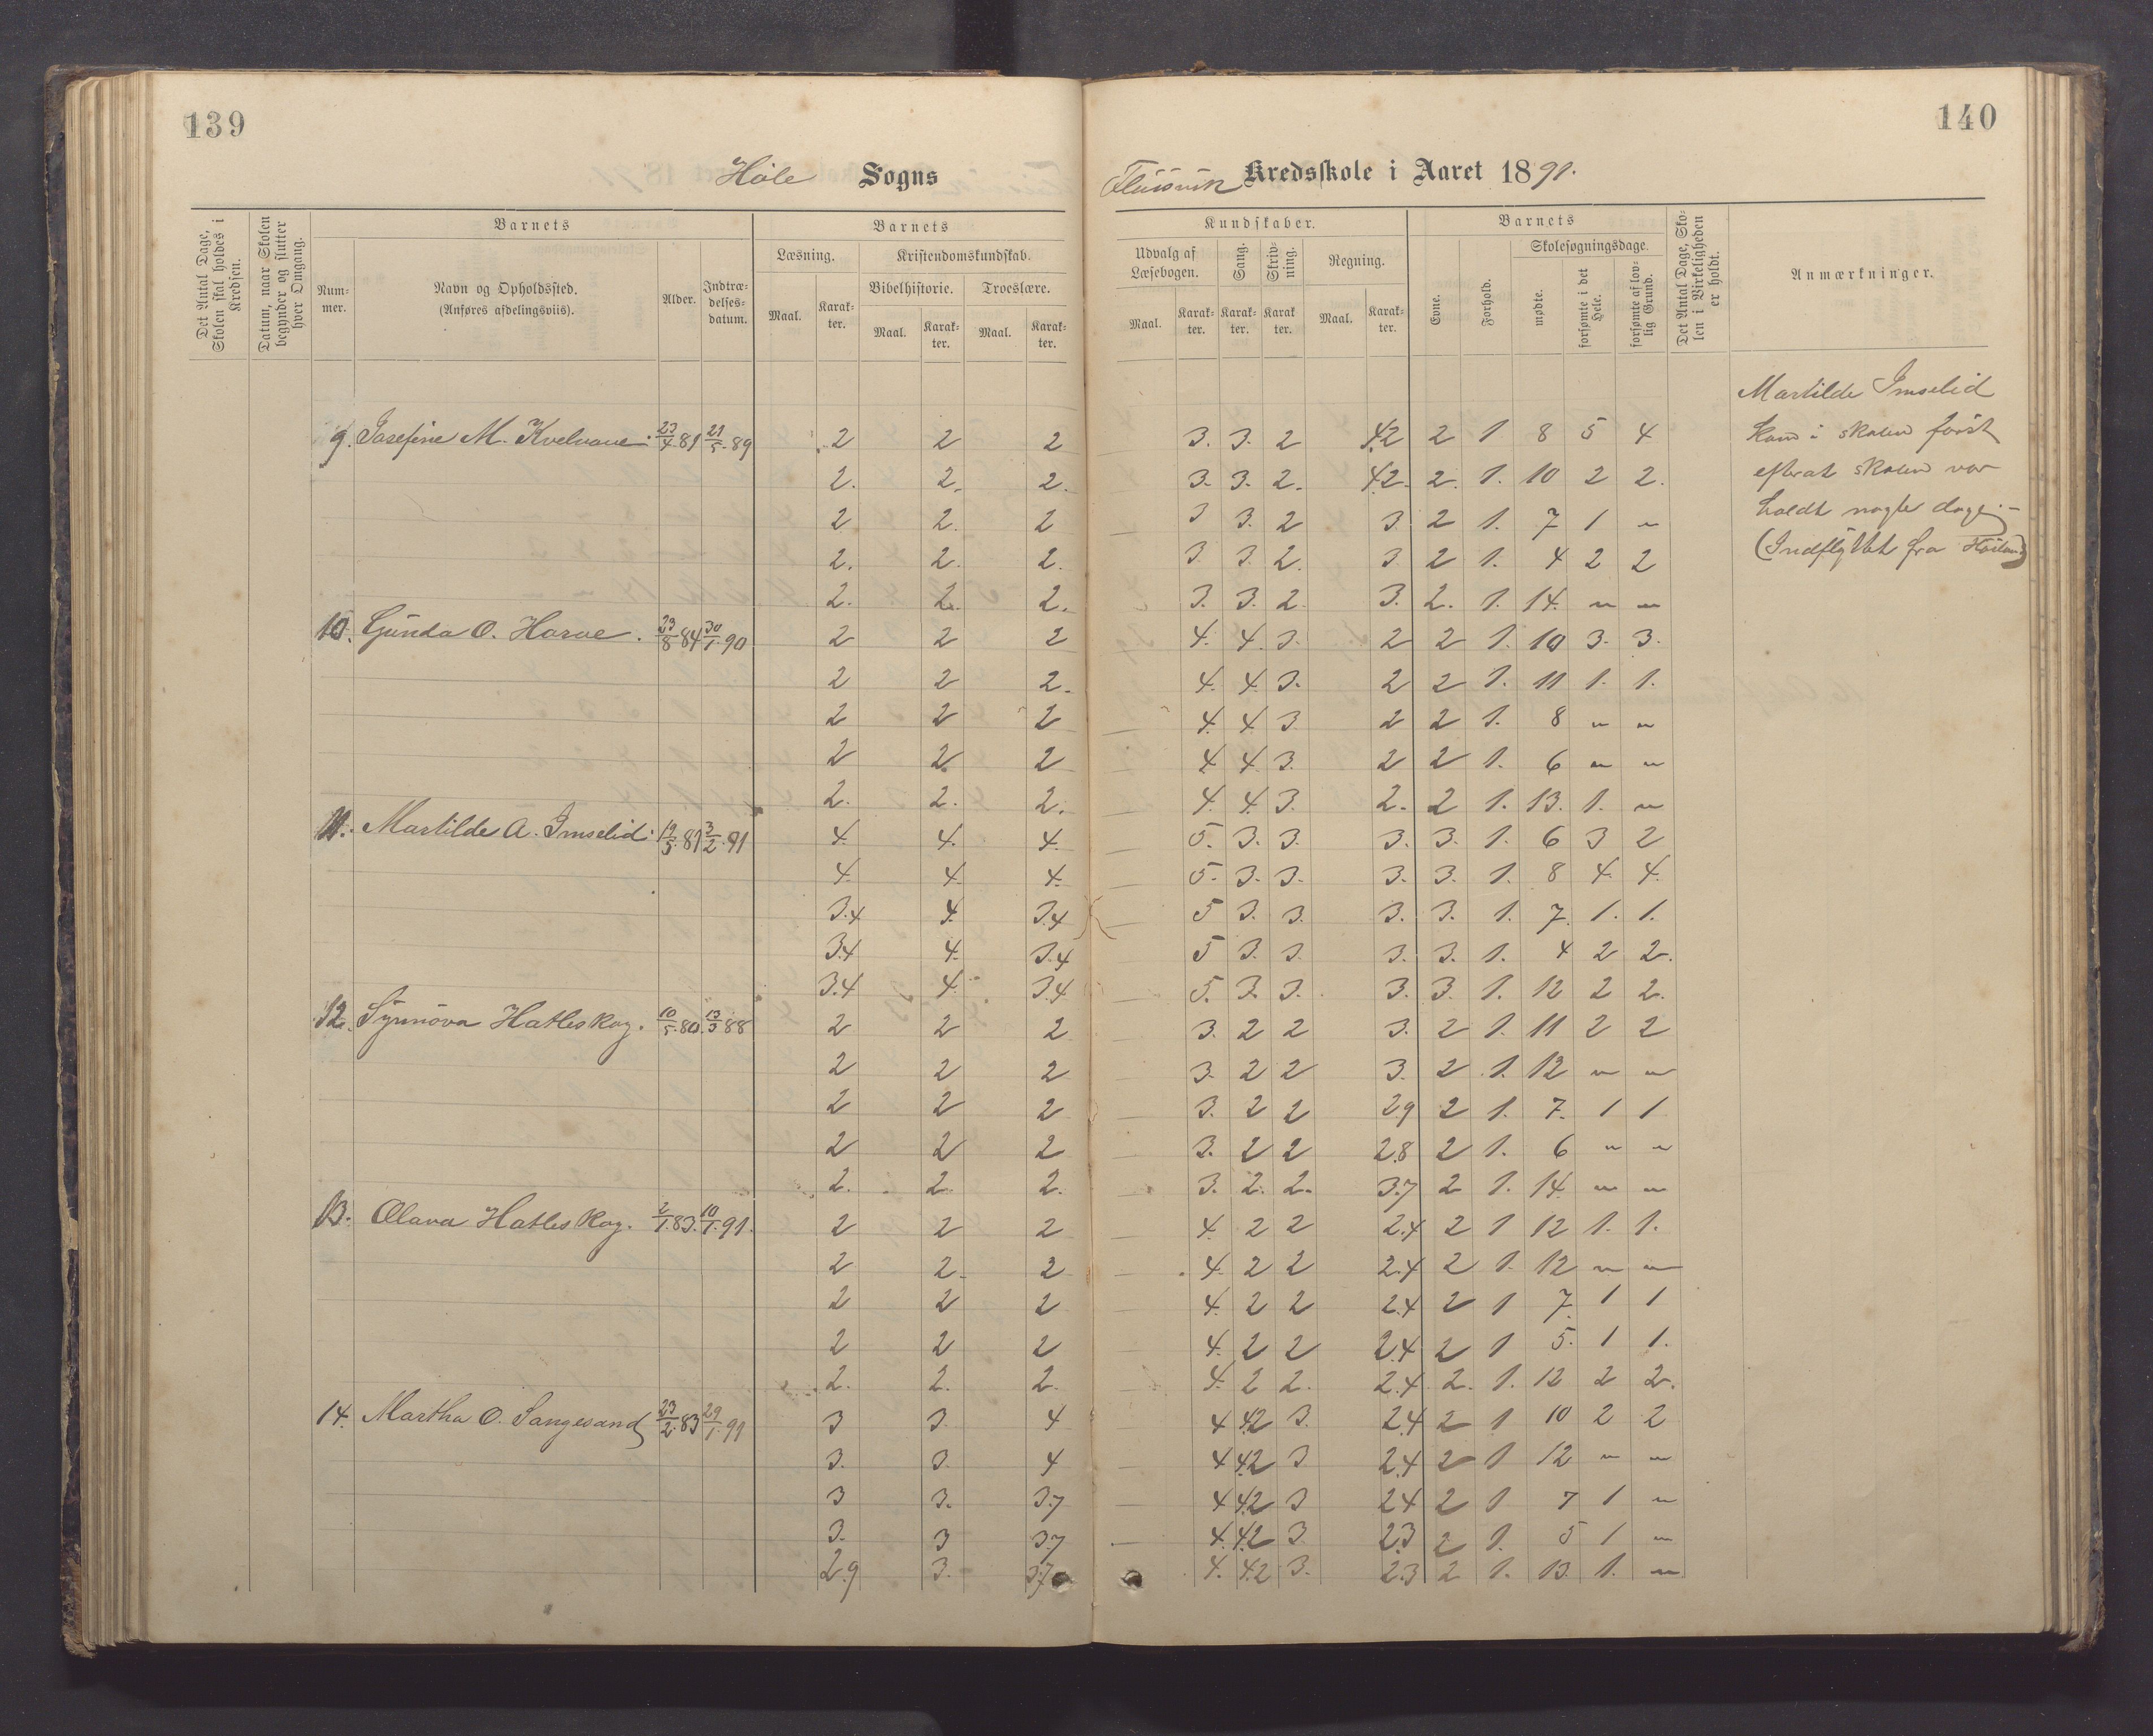 139
140
Høle Sogns
Kredsskole i Aaret 1891.
Det Antal Dage, Skolen skal holdes i Kredsen.
Datum, naar Skolen begynder og slutter hver Omgang.
Barnets
Nummer.
Navn og Opholdssted. (Anføres afdelingsviis).
Alder.
Indtrædelsesdatum.
Barnets
Læsning.
Maal.
Karakter.
Kristendomskundskab.
Bibelhistorie.
Maal.
Karakter.
Troeslære.
Maal.
Karakter.
Kundskaber.
Udvalg af Læsebogen.
Maal.
Karakter.
Sang.
Karakter.
Skrivning.
Karakter
Regning.
Maal.
Karakter.
Barnets
Evne.
Forhold.
Skolesøgningsdage.
mødte.
forsømte i det Hele.
forsømte af lovlig Grund.
Det Antal Dage, Skolen i Virkeligheden er holdt.
Anmærkninger.
Martilde Imselid
kom i skolen først
efterat skolen var
holdt nogle dage. –
(Indflyttet fra
9. Josefine M. Kvelvane. 23/4 81 21/5 89 2 2 2 3. 3. 2 4.2 2 1 8 5 4
2. 2. 2. 3. 3. 2. 4.2. 2. 1. 10 2 2.
2 2. 2 3 3. 2 3. 2 1. 7 1 "
2. 2. 2. 3 3. 2. 3. 2 1. 4 2 2
2. 2. 2. 3. 3. 2. 3. 2. 1. 14. " "
10. Gunda O. Harae. 23/8 84 30/1 90 2 2 2 4. 4. 3. 2 2 1. 10 3. 3.
2 2 2. 4. 4. 3. 2 2 1. 11 1. 1.
2 2 2 4. 4 3 2 2 1. 8 " "
2 2 2 4 4 3. 2 2 1. 6 " "
2. 2. 2. 4. 4. 3. 2. 2 1. 13. 1. "
11. Martilde A. Imselid. 19/5 81 3/2 91 4. 4. 4. 5. 3. 3. 3. 3. 1. 6 3 2
4. 4. 4. 5. 3. 3. 3. 3. 1. 8 4. 4.
3.4 4. 3.4 5 3. 3. 3. 3. 1. 7. 1. 1.
3.4 4. 3.4 5 3. 3. 3. 3. 1. 4 2 2.
3.4 4. 3.4 5. 3. 3. 3. 3. 1. 12 2 2.
12. Synnøva Hatleskog. 10/5 80. 13/3 88 2 2 2 3. 2 2 3. 2 1. 11 2 2
2 2 2 3. 2 2 3. 2 1. 12 " "
2 2 2 3. 2 2 2.9 2 1. 7. 1 1
2 2 2 3. 2 2 2.8 2 1. 6 " "
2. 2. 2. 3. 2. 2. 3.7 2 1. 14. " "
13. Olava Hatleskog. 2/1 83. 10/1 91. 2 2 2 4. 2 2 2.4 2 1 12 1. 1.
2 2. 2 4. 2 2 2.4 2 1. 12 " "
2 2 2 4. 2 2 2.4 2 1 7. 1 1
2 2 2 4. 2 2 2.4 2 1 5. 1 1.
2. 2. 2. 4. 2 2. 2.4. 2. 1. 12 2 2.
14. Martha O. Sangesand 23/2 83 29/1 91 3 3. 4 4 4.2 3. 2.4 2 1 10 2 2
3. 3. 4 4 4.2 3 2.4 2 1 12 " "
3 3. 3.7 4 4.2 3 2.4 2 1 7 1 "
3. 3 3.7 4. 4.2 3. 2.3 2 1. 5 1 "
2.9 3. 3.7 4. 4.2 3. 2.3 2 1. 13. 1. "